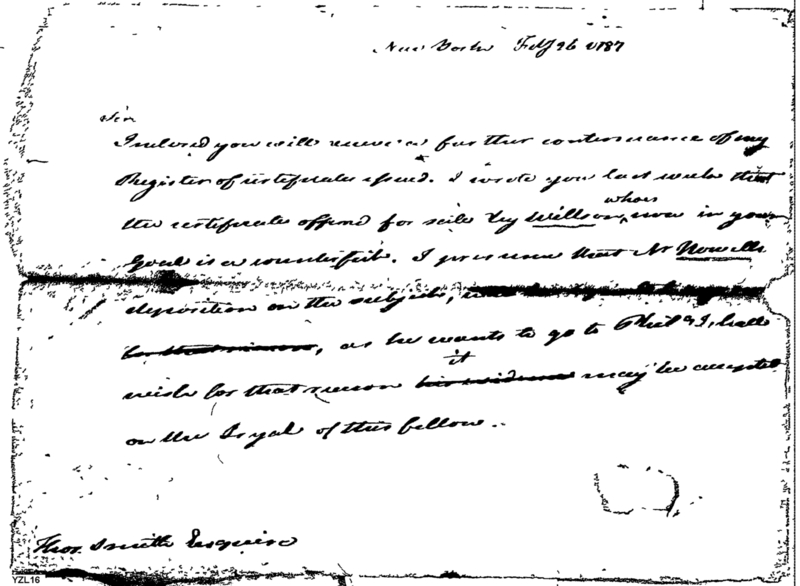 New York Feby 26 1787
Sir
Inclosed you will receive a further continuance of my
Register of certificates issued. I wrote you last week that
whois
the certificate offered for sale by Willson, now in your
Goal is a counterfeit. I presume that Mr Nowells
deposition on the subject,
for that reason, as he wants to go to Phila I shall
it
wish for that reason his evidence may be accepted
on the Tryal of this fellow.
Thos. Smith Esquire
YZL16